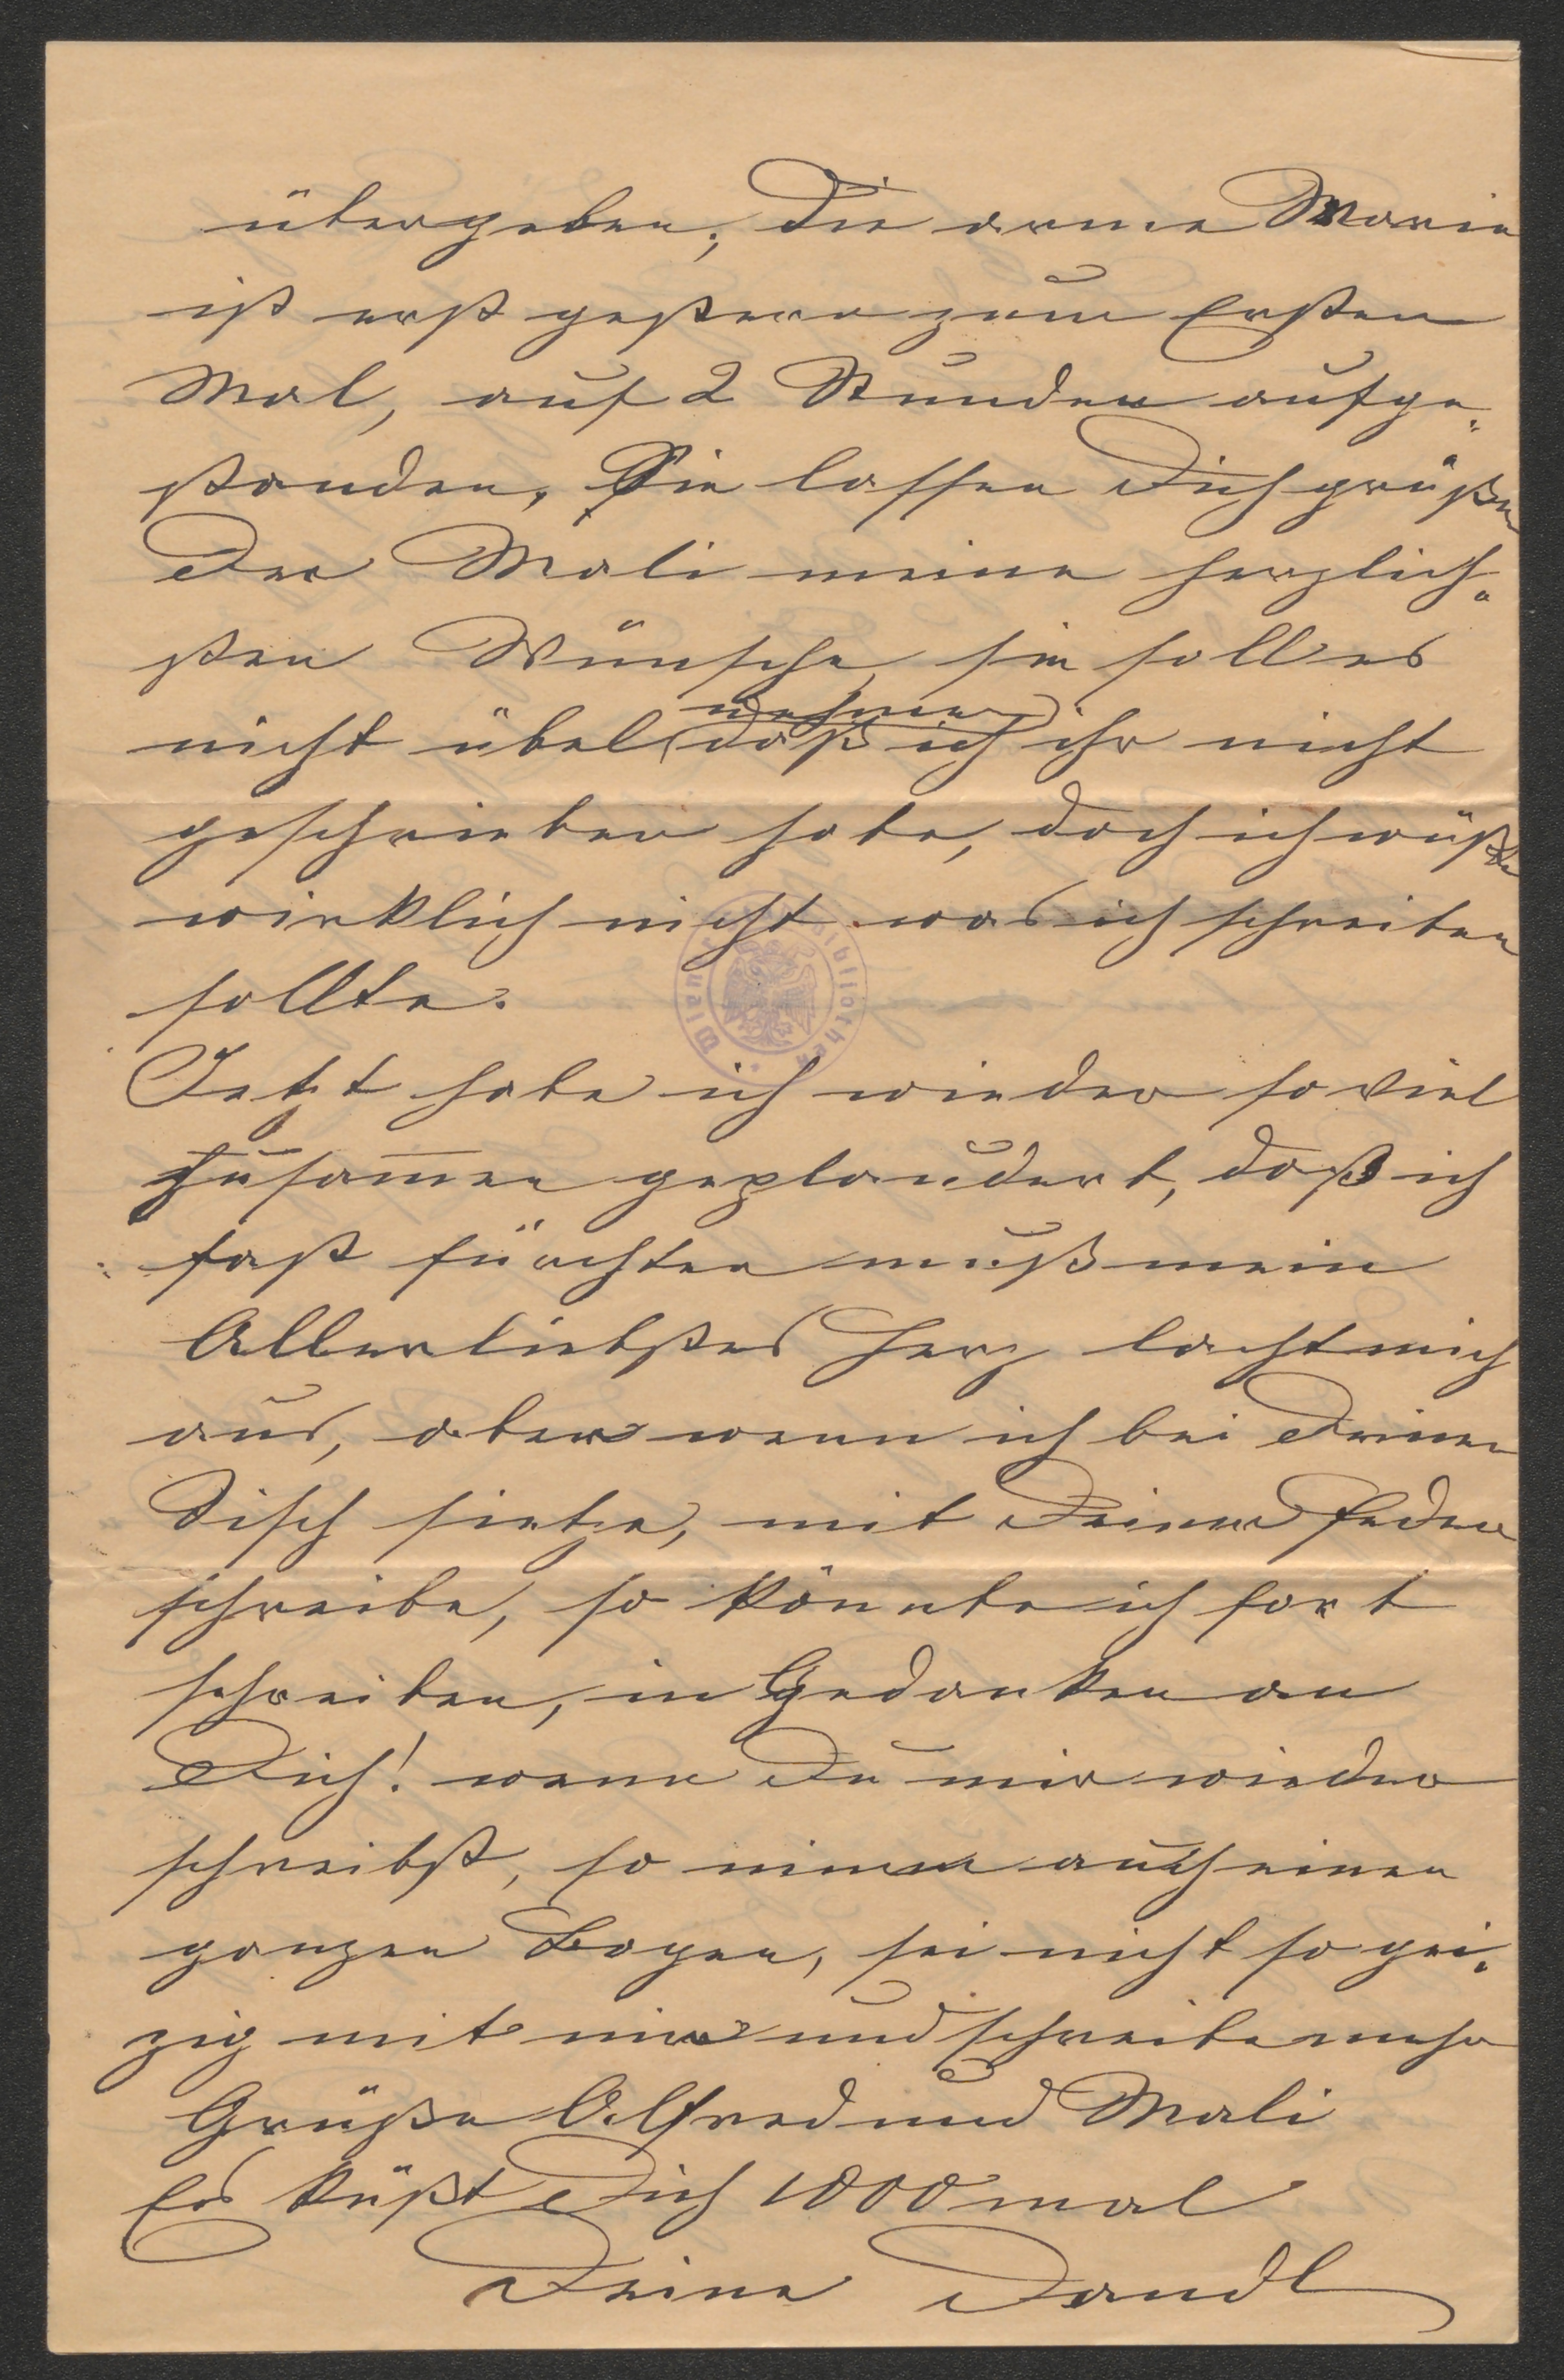 übergeben; die arme Marie
ist erst gestern zum Ersten
Mal, auf 2 Stunden aufge„
standen, Sie lassen Dich grüßen
Der Mali meine herzlich„
sten Wünsche, sie soll es
nehmen
nicht übel daß ich ihr nicht
geschrieben habe, doch ich wüßte
wirklich nicht was ich schreiben
sollte.
Jetzt habe ich wieder so viel
zusam̅en geplaudert, daß ich
fast fürchten muß mein
Allerliebstes Herz lacht mich
aus, aber wenn ich bei Deinen
Tisch sietze, mit Deiner Feder
schreibe, so könnte ich fort
schreiben, in Gedanken an
Dich! wenn Du mir wieder
schreibst, so nimm auch einen
ganzen Bogen, sei nicht so gei„
zig mit mir und schreibe mehr
Grüße Alfred und Mali
Es küßt Dich 1000 mal
Deine Dandl